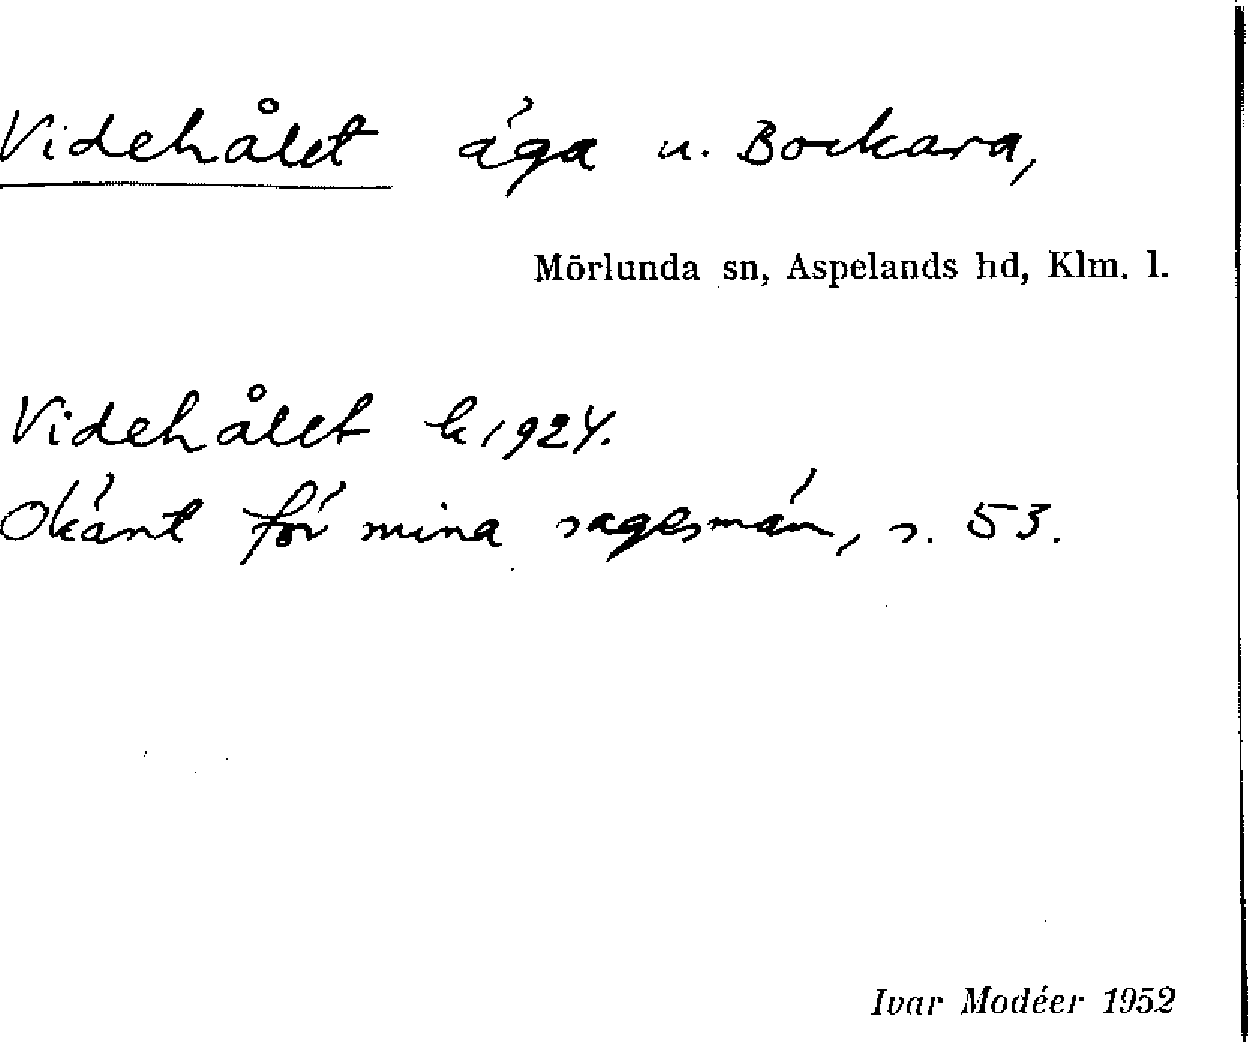 Videhålet äga u. Bockara,
Mörlunda sn, Aspelands hd, Klm. l.
Videhålet k 1924.
Okänt för mina sagesmän, s. 53.
Ivar Modéer 1952